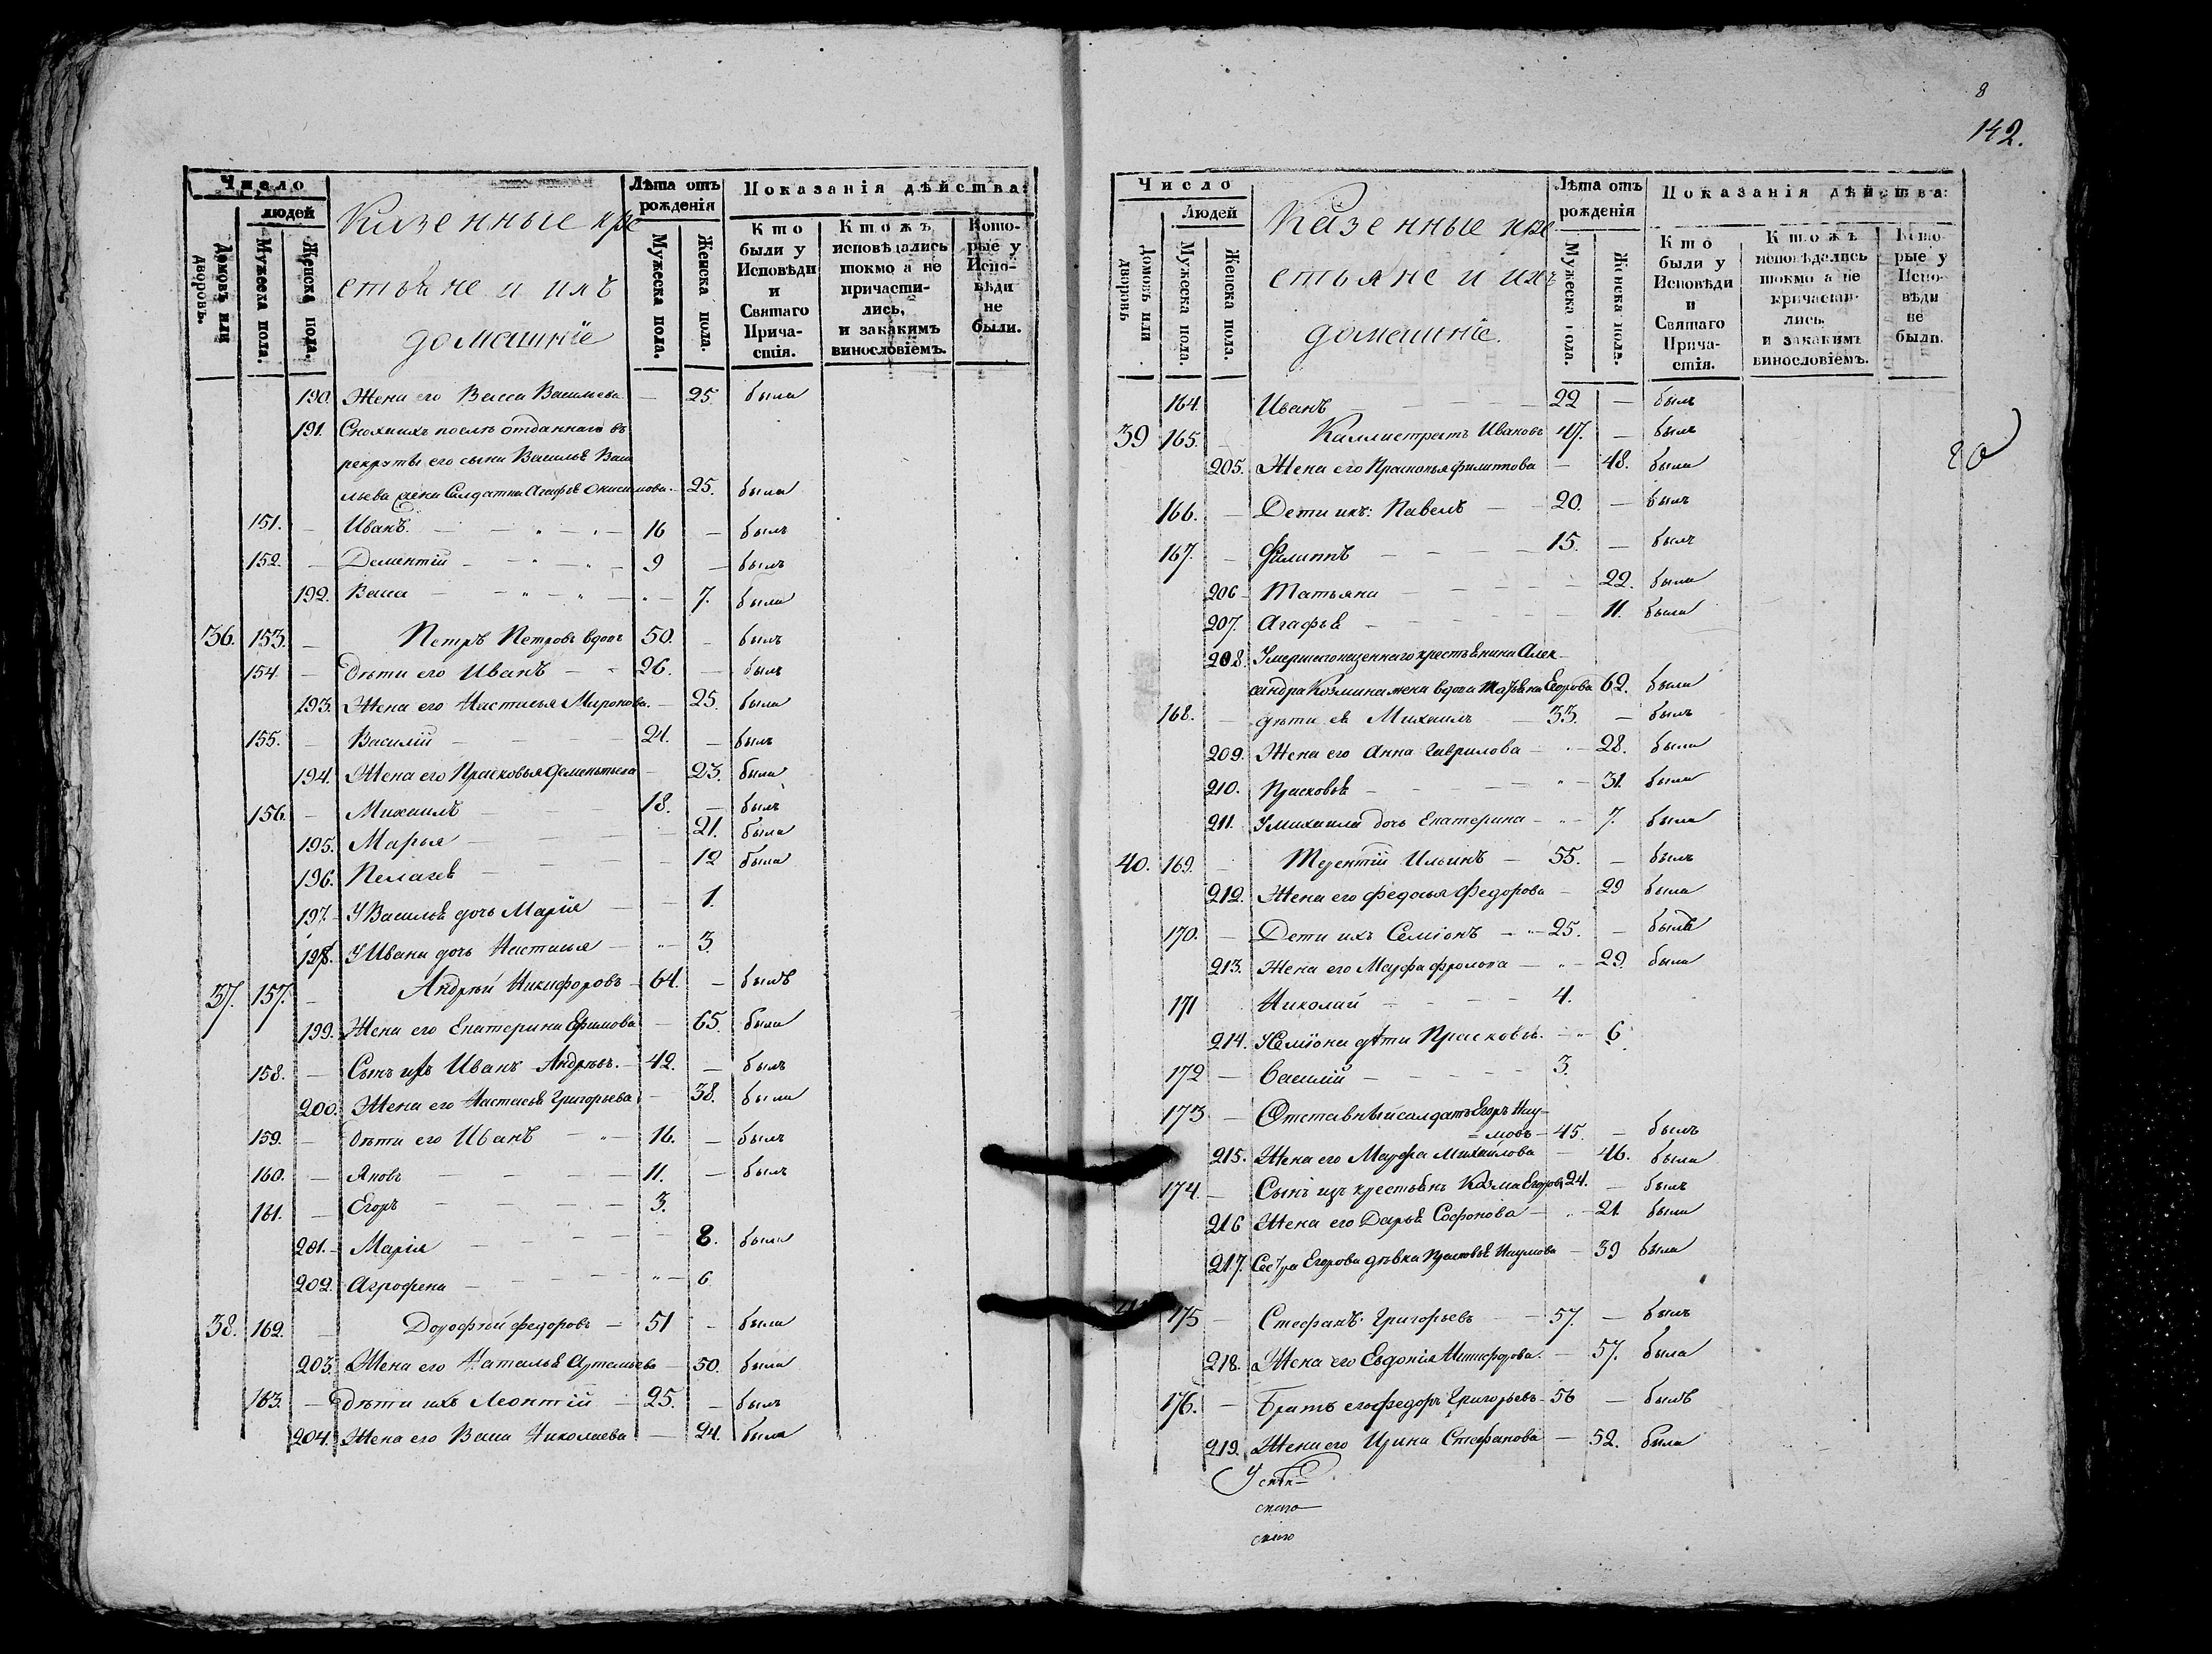 Число
людей
Домовъ или дворовъ.
Мужеска пола.
Женска пола.
Казенные кре
стьяне и ихъ
домашніе
Лѣта отъ рожденія
Мужеска пола.
Женска пола.
Показанія дѣйства:
Кто были у Исповѣди и Святаго Причастія.
Ктожъ исповѣдались токмо а не причастились, и закакимъ винословіемъ.
Которые у Исповѣди не были.
190. Жена его Васса Васильева — 25. была
191. Сноха ихъ послѣ отданнаго въ
рекруты его сына Василья Васи
льева жена Солдатка Агафья Онисимова — 25. была
151. — Иванъ — 16 — былъ
152. — Дементій — 9 — былъ
192. Васса — 7. была
36. 153. — Петръ Петровъ вдовъ 50. — былъ
154. — Дѣти его Иванъ — 26. — былъ
193. Жена его Настасья Миронова. — 25. была
155. — Василій — 21. — былъ
194. Жена его Прасковья Дементьева — 23. была
156. — Михаилъ — 18. — былъ
195. Марья — 21. была
196. Пелагея — 12 была
197. У Василья дочь Марія — 1.
198. У Ивана дочь Настасья — 3
37. 157. — Андрей Никифоровъ — 64. — былъ
199. Жена его Екатерина Ефимова — 65. была
158. — Сынъ ихъ Иванъ Андрѣевъ. — 42. — былъ
200. Жена его Настасья Григорьева — 38. была
159. — Дѣти его Иванъ — 16. — былъ
160. — Яковъ — 11. — былъ
161. — Егоръ — 3.
201. — Марія — 8. была
202. Агрофена — 6
38. 162. — Дорофѣй Федоровъ — 51 — была
203. Жена его Наталья Артамьева — 50. была
163. — Дѣти ихъ Леонтій — 25. — былъ
204. Жена его Васса Николаева — 24. была
8
142.
Число
Людей
Домовъ или дворовъ
Мужеска пола.
Женска пола.
Казенные кре
стьяне и ихъ
домашніе.
Лѣта отъ рожденія
Мужеска пола.
Женска пола.
Показанія дѣйства:
Кто были у Исповѣди и Святаго Причастія.
Ктожъ исповѣдались токмо а не причастились, и закакимъ винословіемъ.
Которые у Исповѣди не были.
164. Иванъ — 22 — былъ
39 165. — Каллистратъ Ивановъ 47. — былъ
205. Жена его Прасковья Филиппова — 48. была
166. — Дети ихъ: Павелъ — 20. — былъ
167. — Филиппъ — 15. — былъ
206 — Татьяна — 22. была
207. Агафья — 11. была
208. Умершаго казеннаго крестьянина Алек-
сандра Козмина жена вдова Татьяна Егорова 62. была
168. — дѣти ея Михаилъ — 33. — былъ
209. Жена его Анна Гаврилова — 28. была
210. Прасковья — 31. была
211. У михаила дочь Екатерина — 7. была
40. 169. — Терентій Ильинъ — 55. — былъ
212. Жена его Федосья Федорова — 29 была
170. — Дети ихъ Семіонъ — 25. — былъ
213. Жена его Марфа Фролова — 29. была
171 Николай — 4.
214. У Семіона дѣти Прасковья. — 6
172 — Василій — 3.
173 — Отставный солдатъ Егоръ Нау-
=мовъ — 45. — былъ
215. Жена его Марфа Михайлова — 46. была
174. — Сынъ изъ крестьянъ Козма Егоровъ 24. — былъ
216 Жена его Дарья Софонова — 21. была
217. Сестра Егорова дѣвка Прасковья Наумова — 39 была
175 — Стефанъ Григорьевъ — 57. — былъ
218. Жена его Евдокія Никифорова. — 57. была
176. — Братъ его Федоръ Григорьевъ — 56 — былъ
219. Жена его Ирина Стефанова — 52. была
скаго